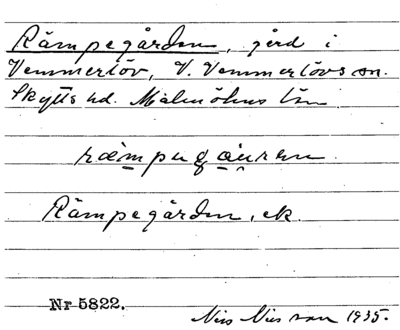 Rämpegården, gård i
Vemmerlöv, V. Vemmerlövs sn.
Skytts hd. Malmöhus län
Rämpegården, ek.
Nr 5822.
Nils Nilsson 1935.